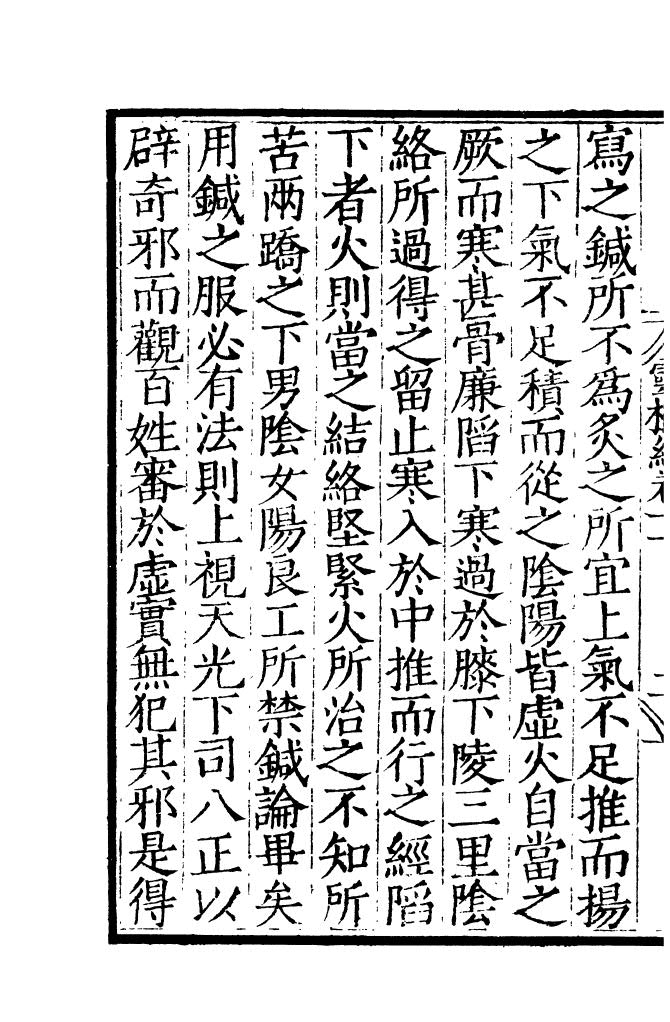 寫之鍼所不爲灸之所宜上氣不足推而揚
之下氣不足積而從之陰陽皆虛火自當之
厥而寒甚骨廉陷下寒過於膝下陵三里陰
絡所過得之留止寒入於中推而行之經陷
下者火則當之結絡堅緊火所治之不知所
苦兩蹻之下男陰女陽良工所禁鍼論畢矣
用鍼之服必有法則上視天光下司八正以
辟奇邪而觀百姓審於虛實無犯其邪是得